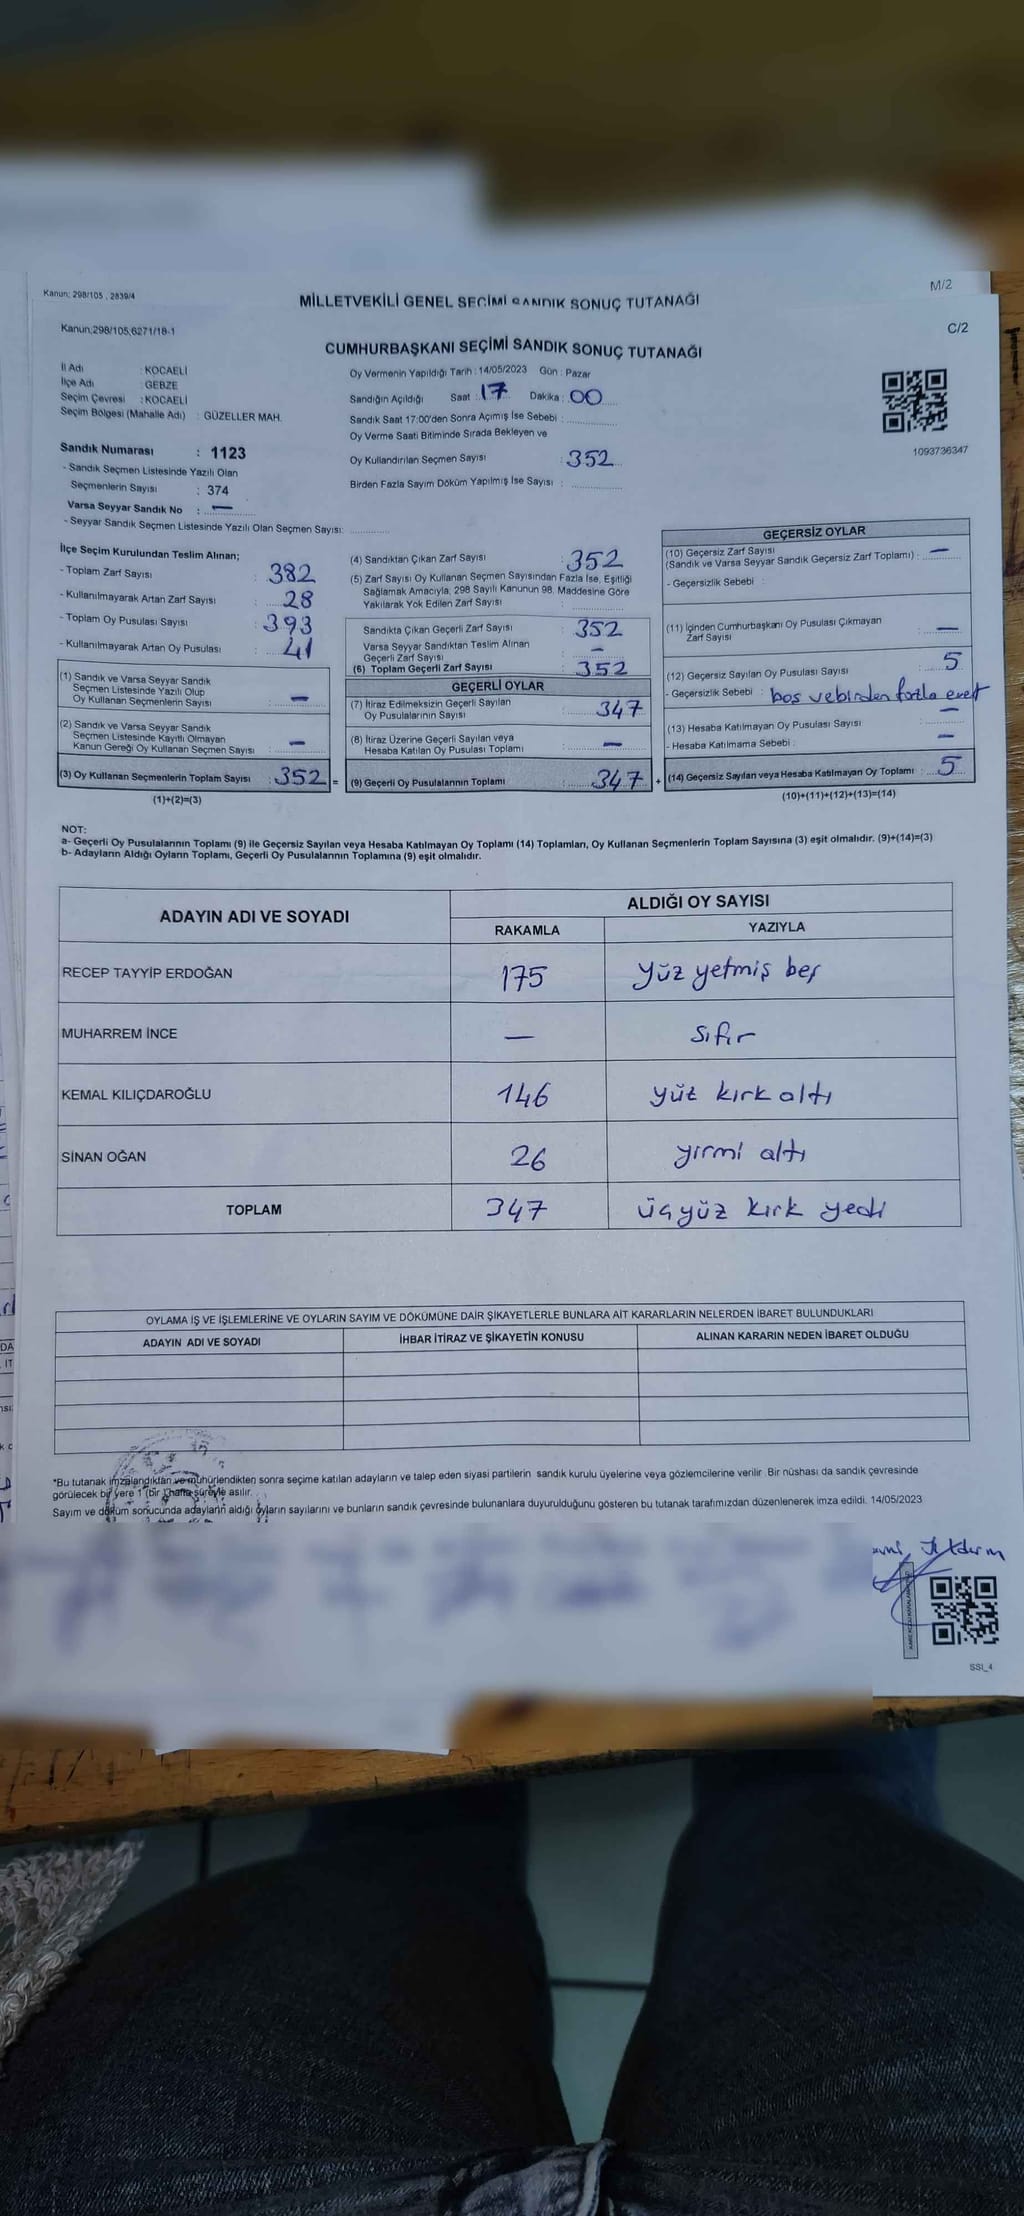 Kanun: 298/105 , 2839/4
M/2
MİLLETVEKİLİ GENEL SEÇİMİ SANDIK SONUÇ TUTANAĞI
Kanun;298/105,6271/18-1
C/2
CUMHURBAŞKANI SEÇİMİ SANDIK SONUÇ TUTANAĞI
İl Adı : KOCAELİ
İlçe Adı : GEBZE
Seçim Çevresi : KOCAELİ
Seçim Bölgesi (Mahalle Adı) : GÜZELLER MAH.
Sandık Numarası : 1123
- Sandık Seçmen Listesinde Yazılı Olan
Seçmenlerin Sayısı : 374
Varsa Seyyar Sandık No : —
- Seyyar Sandık Seçmen Listesinde Yazılı Olan Seçmen Sayısı:
Oy Vermenin Yapıldığı Tarih : 14/05/2023 Gün : Pazar
Sandığın Açıldığı Saat : 17 Dakika : 00
Sandık Saat 17:00'den Sonra Açımış İse Sebebi :
Oy Verme Saati Bitiminde Sırada Bekleyen ve
Oy Kullandırılan Seçmen Sayısı : 352
Birden Fazla Sayım Döküm Yapılmış İse Sayısı :
1093736347
İlçe Seçim Kurulundan Teslim Alınan;
- Toplam Zarf Sayısı : 382
- Kullanılmayarak Artan Zarf Sayısı : 28
- Toplam Oy Pusulası Sayısı : 393
- Kullanılmayarak Artan Oy Pusulası : 41
(1) Sandık ve Varsa Seyyar Sandık
Seçmen Listesinde Yazılı Olup
Oy Kullanan Seçmenlerin Sayısı : —
(2) Sandık ve Varsa Seyyar Sandık
Seçmen Listesinde Kayıtlı Olmayan
Kanun Gereği Oy Kullanan Seçmen Sayısı : —
(3) Oy Kullanan Seçmenlerin Toplam Sayısı : 352 =
(1)+(2)=(3)
(4) Sandıktan Çıkan Zarf Sayısı : 352
(5) Zarf Sayısı Oy Kullanan Seçmen Sayısından Fazla İse, Eşitliği
Sağlamak Amacıyla, 298 Sayılı Kanunun 98. Maddesine Göre
Yakılarak Yok Edilen Zarf Sayısı :
Sandıkta Çıkan Geçerli Zarf Sayısı : 352
Varsa Seyyar Sandıktan Teslim Alınan
Geçerli Zarf Sayısı : —
(6) Toplam Geçerli Zarf Sayısı : 352
GEÇERLİ OYLAR
(7) İtiraz Edilmeksizin Geçerli Sayılan
Oy Pusulalarının Sayısı : 347
(8) İtiraz Üzerine Geçerli Sayılan veya
Hesaba Katılan Oy Pusulası Toplamı : —
(9) Geçerli Oy Pusulalarının Toplamı : 347 +
GEÇERSİZ OYLAR
(10) Geçersiz Zarf Sayısı
(Sandık ve Varsa Seyyar Sandık Geçersiz Zarf Toplamı) : —
- Geçersizlik Sebebi :
(11) İçinden Cumhurbaşkanı Oy Pusulası Çıkmayan
Zarf Sayısı : —
(12) Geçersiz Sayılan Oy Pusulası Sayısı : 5
- Geçersizlik Sebebi : boş vebirden fazla evet
(13) Hesaba Katılmayan Oy Pusulası Sayısı : —
- Hesaba Katılmama Sebebi : —
(14) Geçersiz Sayılan veya Hesaba Katılmayan Oy Toplamı : 5
(10)+(11)+(12)+(13)=(14)
NOT:
a- Geçerli Oy Pusulalarının Toplamı (9) ile Geçersiz Sayılan veya Hesaba Katılmayan Oy Toplamı (14) Toplamları, Oy Kullanan Seçmenlerin Toplam Sayısına (3) eşit olmalıdır. (9)+(14)=(3)
b- Adayların Aldığı Oyların Toplamı, Geçerli Oy Pusulalarının Toplamına (9) eşit olmalıdır.
ADAYIN ADI VE SOYADI
ALDIĞI OY SAYISI
RAKAMLA YAZIYLA
RECEP TAYYİP ERDOĞAN 175 yüz yetmiş beş
MUHARREM İNCE — sıfır
KEMAL KILIÇDAROĞLU 146 yüz kırk altı
SİNAN OĞAN 26 yirmi altı
TOPLAM 347 üçyüz kırk yedi
OYLAMA İŞ VE İŞLEMLERİNE VE OYLARIN SAYIM VE DÖKÜMÜNE DAİR ŞİKAYETLERLE BUNLARA AİT KARARLARIN NELERDEN İBARET BULUNDUKLARI
ADAYIN ADI VE SOYADI İHBAR İTİRAZ VE ŞİKAYETİN KONUSU ALINAN KARARIN NEDEN İBARET OLDUĞU
*Bu tutanak imzalandıktan ve mühürlendikten sonra seçime katılan adayların ve talep eden siyasi partilerin sandık kurulu üyelerine veya gözlemcilerine verilir. Bir nüshası da sandık çevresinde
görülecek bir yere 1 (bir ) hafta süreyle asılır.
Sayım ve döküm sonucunda adayların aldığı oyların sayılarını ve bunların sandık çevresinde bulunanlara duyurulduğunu gösteren bu tutanak tarafımızdan düzenlenerek imza edildi. 14/05/2023
SSI_4